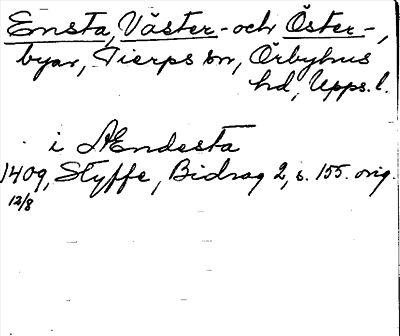 Ensta, Väster- och Öster-,
byar, Tierps sn, Örbyhus
hd, Upps. l.
i Ændesta
1409, Styffe, Bidrag 2, s. 155. orig.
12/8